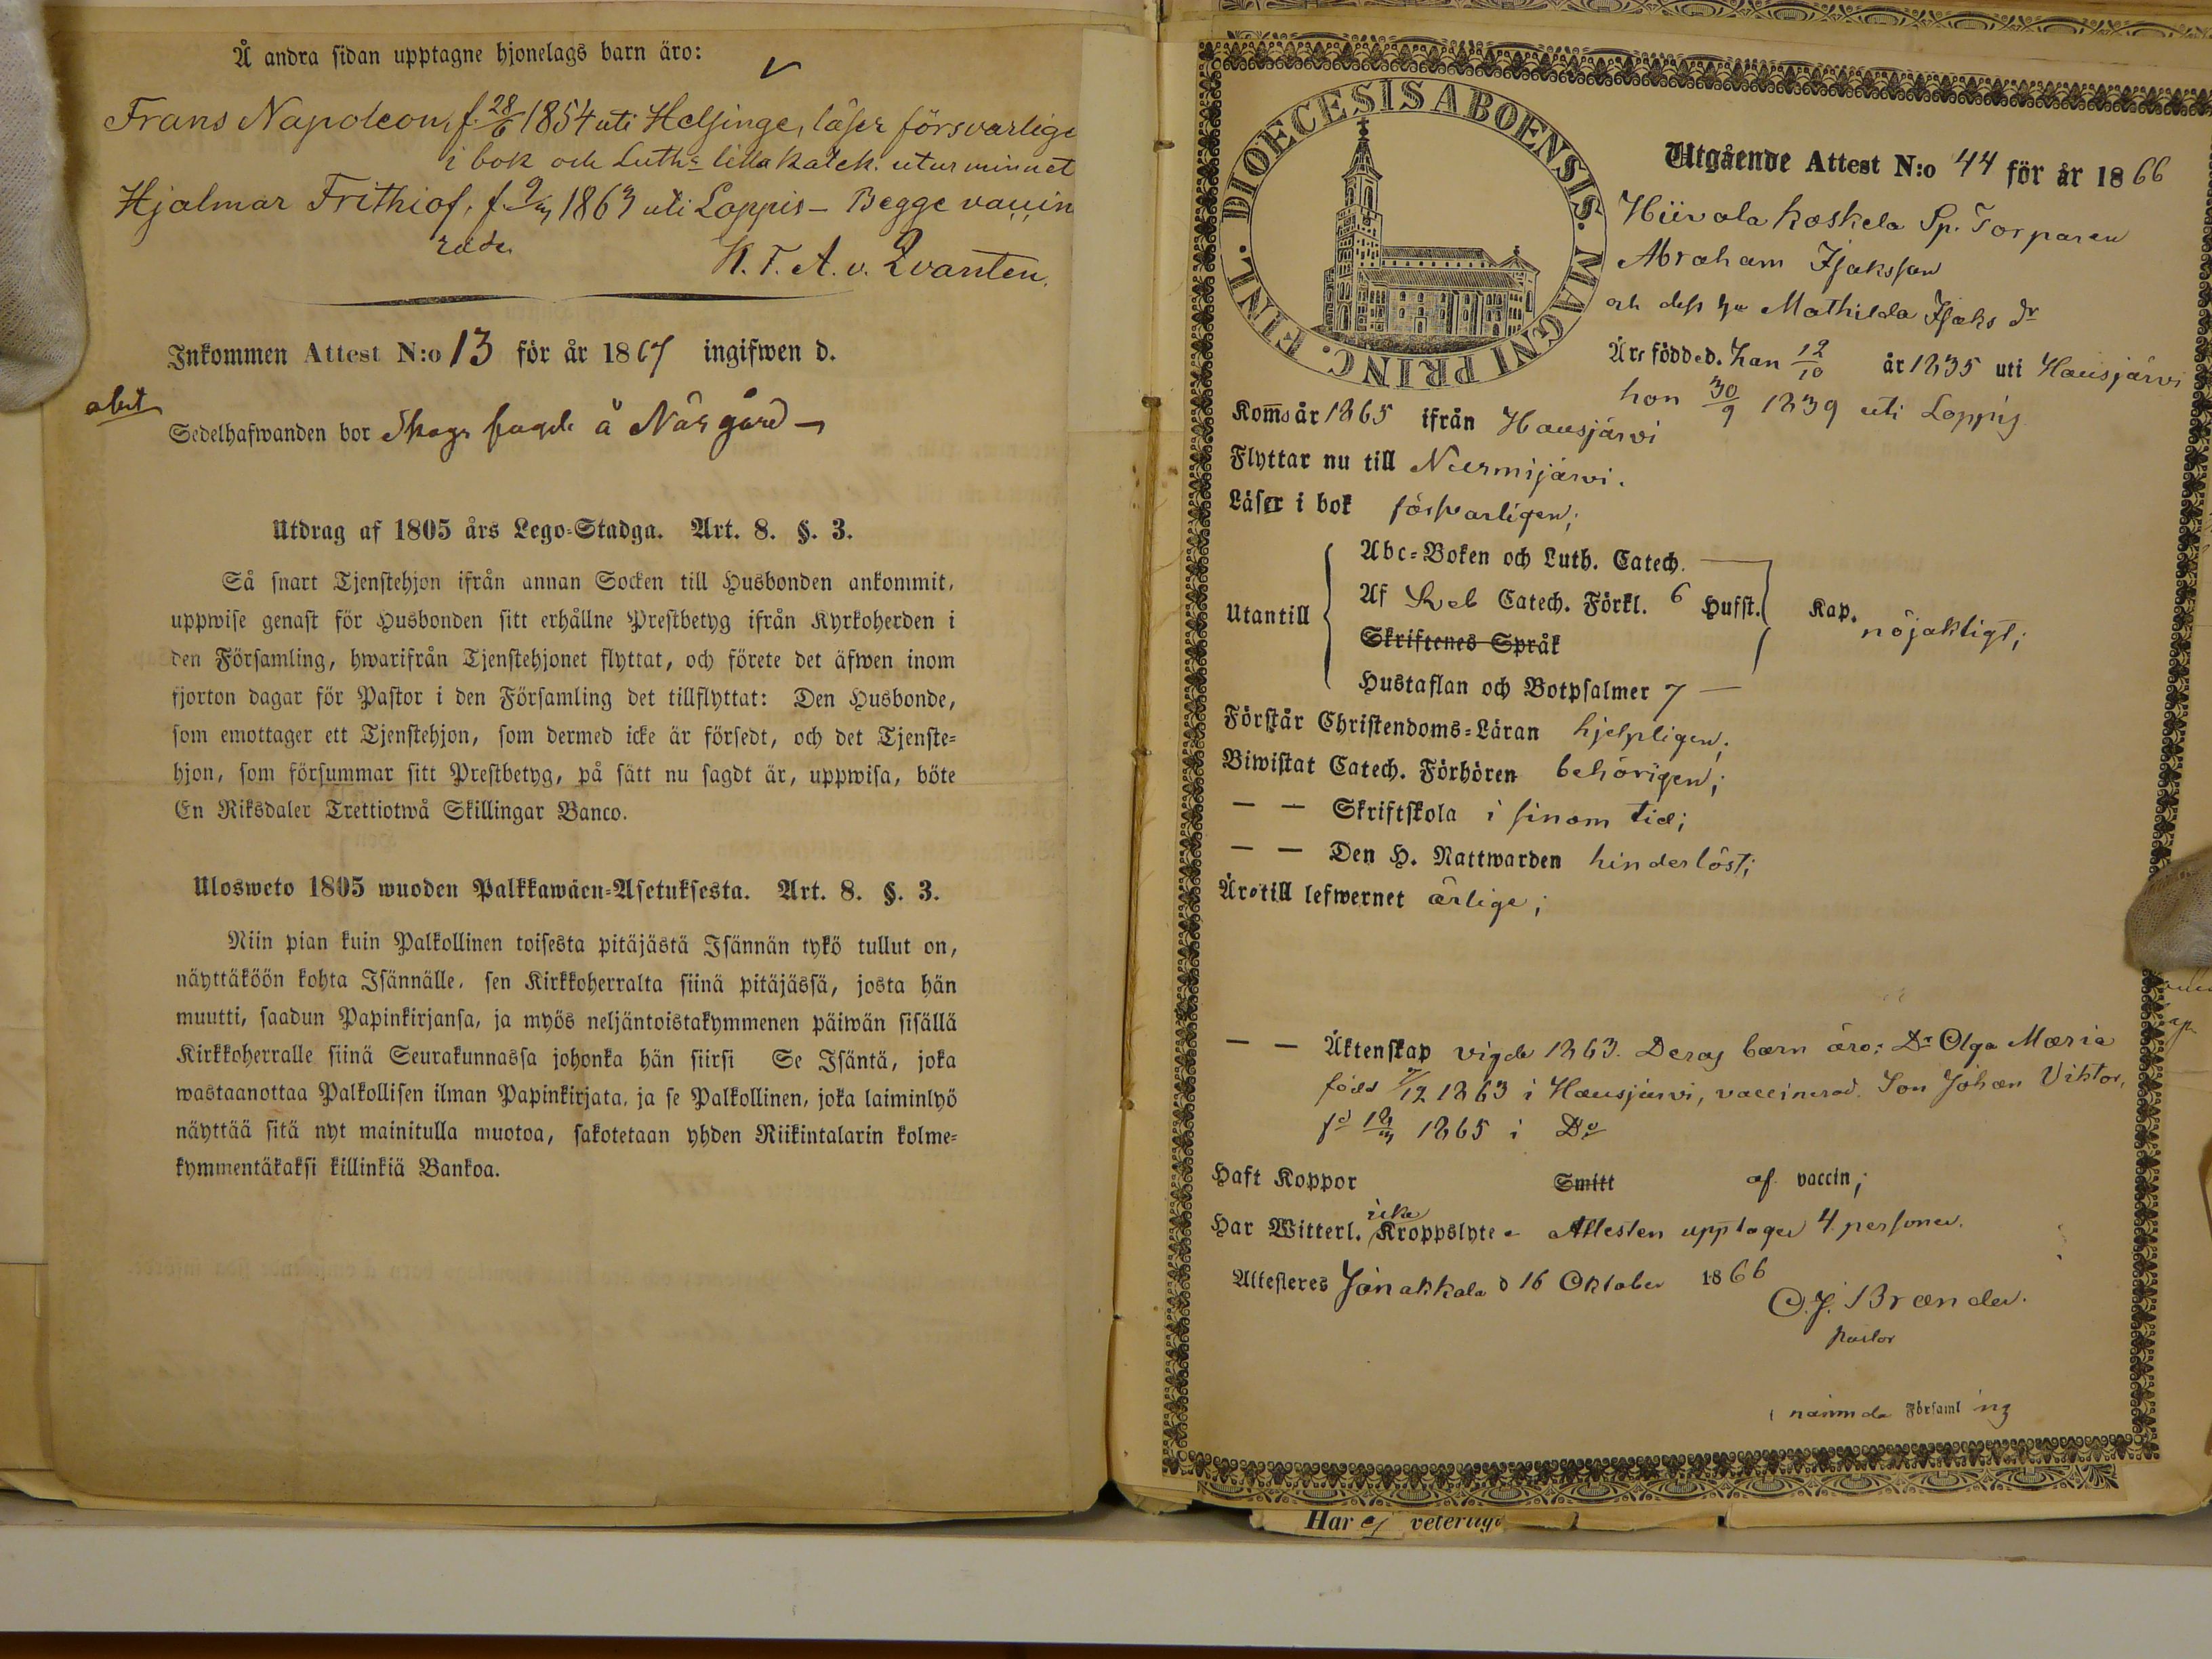 Å andra sidan upptagne hjonelags barn äro:
Frans Napoleon, f. 28/6 1854 uti Helsinge, läser försvarlige
i bok och Luths lilla katek. utur minnet
Hjalmar Frithiof, f. 9/3 1863 uti Loppis – Begge vaccin
rade.
K. F. A. v. Qvanten.
Inkommen Attest N:o 13 för år 1867 ingifwen d.
abut
Sedelhafwanden bor Skogs å Närgård –
Utdrag af 1805 års Lego-Stadga. Art. 8. §. 3.
Så snart Tjenstehjon ifrån annan Socken till Husbonden ankommit,
uppwise genast för Husbonden sitt erhållne Prestbetyg ifrån Kyrkoherden i
den Församling, hwarifrån Tjenstehjonet flyttat, och förete det äfwen inom
fjorton dagar för Pastor i den Församling det tillflyttat: Den Husbonde,
som emottager ett Tjenstehjon, som dermed icke är försedt, och det Tjenste-
hjon, som försummar sitt Prestbetyg, på sätt nu sagdt är, uppwisa, böte
En Riksdaler Trettiotwå Skillingar Banco.
Ulosweto 1805 wuoden Palkkawäen-Asetuksesta. Art. 8. §. 3.
Niin pian kuin Palkollinen toisesta pitäjästä Isännän tykö tullut on,
näyttäköön kohta Isännälle, sen Kirkkoherralta siinä pitäjässä, josta hän
muutti, saadun Papinkirjansa, ja myös neljäntoistakymmenen päiwän sisällä
Kirkkoherralle siinä Seurakunnassa johonka hän siirsi Se Isäntä, joka
wastaanottaa Palkollisen ilman Papinkirjata, ja se Palkollinen, joka laiminlyö
näyttää sitä nyt mainitulla muotoa, sakotetaan yhden Riikintalarin kolme-
kymmentäkaksi killinkiä Bankoa.
DIOECESIS ABOENSIS. MAGNI PRINC. FINL.
Utgående Attest N:o 44 för år 1866
Hiivola koskela Sp. Torparen
Abraham Isaksson
och dess hu Mathilda Isaks dr
Äro födde d. han 12/10 år 1835 uti Hausjärvi
hon 30/9 1839 uti Loppis
Koms år 1865 ifrån Hausjärvi
Flyttar nu till Nurmijärvi.
Läser i bok försvarligen;
Utantill
Abc-Boken och Luth. Catech.
Af Sveb Catech. Förkl. 6 Hufst. Kap. nöjaktigt;
Skriftenes Språk
Hustaflan och Botpsalmer 7 –
Förstår Christendoms-Läran hjelpligen;
Biwistat Catech. Förhören behörigen;
– – Skriftskola i sinom tid;
– – Den H. Nattwarden hinderlöst;
Äro till lefwernet ärlige;
– – Äktenskap vigde 1863. Deras barn äro: Dr Olga Maria
född 7/12 1863 i Hausjärvi, vaccinerad. Son Johan Viktor,
fd 1865 i Do
Haft Koppor Smitt af vaccin;
icke
Har Witterl. Kroppslyte – Attesten upptager 4 personer.
Attesteres Janakkala d 16 Oktober 1866
C. J. Brander.
pastor
i nämnda Församling
Har ej veterlige